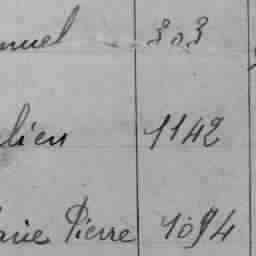 nuel 303
lien 1142
arie Pierre 1094